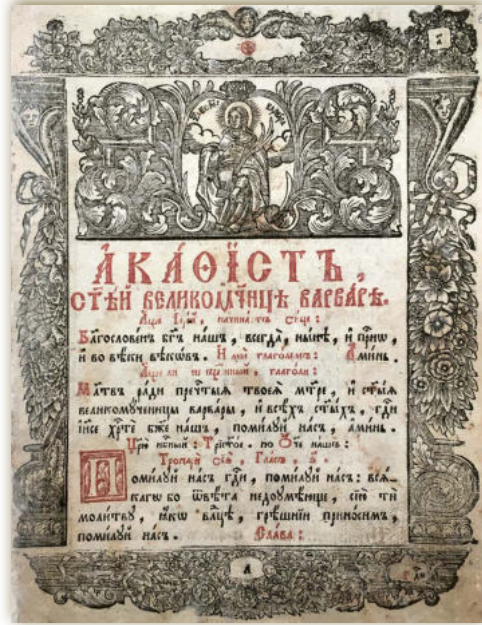 АКАѲІСТЪ,
СТ҃ѢЙ ВЕЛИКОМЧ҃НИЦѢ ВАРВАРѢ.
Аще Іерей, начинаетъ сице:
Благословенъ бг҃ъ нашъ, всегда, нынѣ, и присно,
и во вѣки вѣковъ. И мы глаголемъ: Аминь.
Аще ли не священный, глаголи:
Мл҃твъ ради преч҃тыѧ твоеѧ мт҃ре, и ст҃ыѧ
великомученицы варвары, и всѣхъ ст҃ыхъ, гд҃и
іи҃се хр҃те бж҃е нашъ, помилуй насъ, аминь.
Цр҃ю нб҃ный: Трист҃ое. по Ѻ҆ч҃е нашъ:
Гласъ
Помилуй насъ гд҃и, помилуй насъ: всѧ-
кагѡ бо ѿвѣта недоумѣюще, сію ти
молитву, ꙗкѡ влⷣцѣ, грѣшніи приносимъ,
помилуй насъ. Слава: